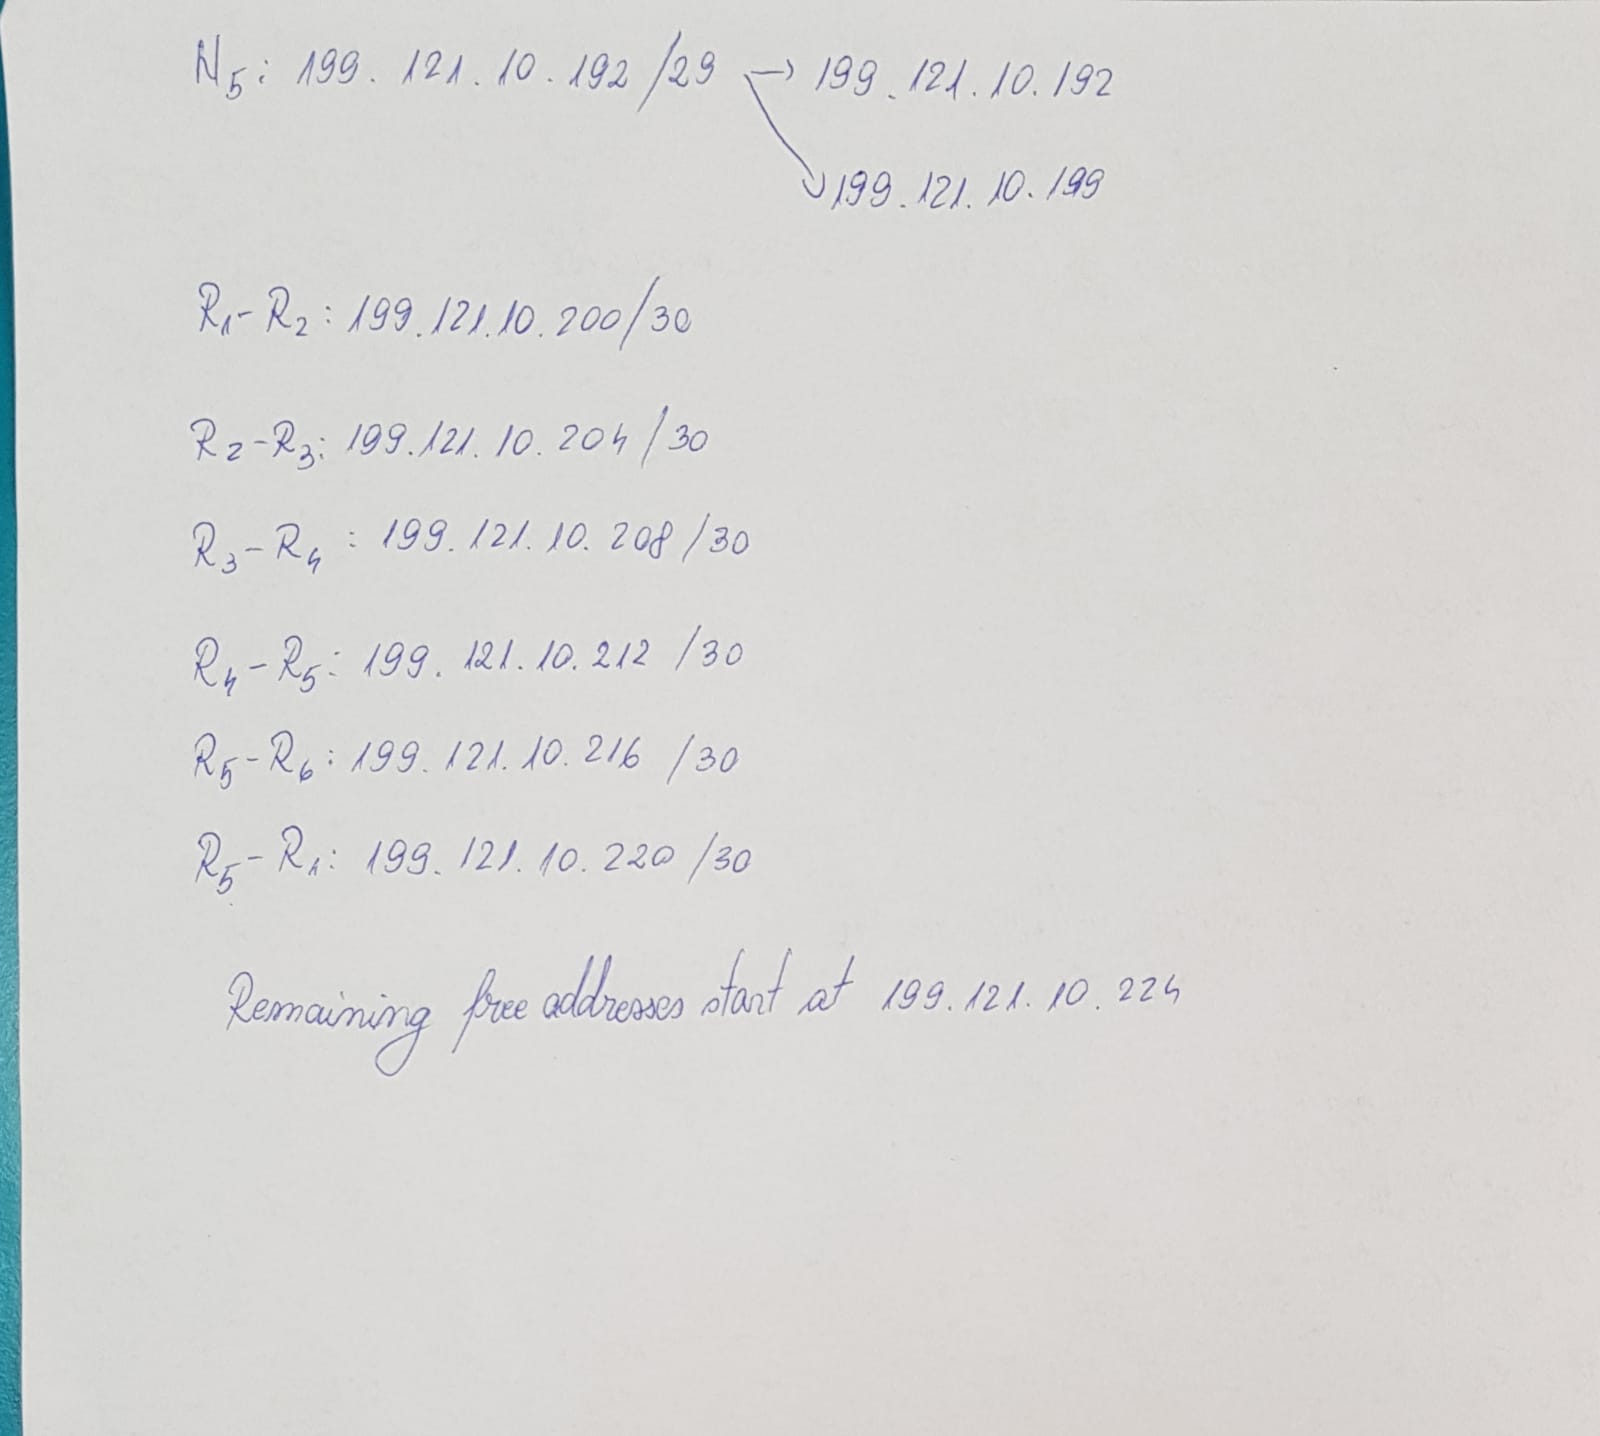 N5: 199.121.10.192/29 → 199.121.10.192
199.121.10.199
R1-R2: 199.121.10.200/30
R2-R3: 199.121.10.204/30
R3-R4: 199.121.10.208/30
R4-R5: 199.121.10.212/30
R5-R6: 199.121.10.216/30
R5-R1: 199.121.10.220/30
Remaining free addresses start at 199.121.10.224